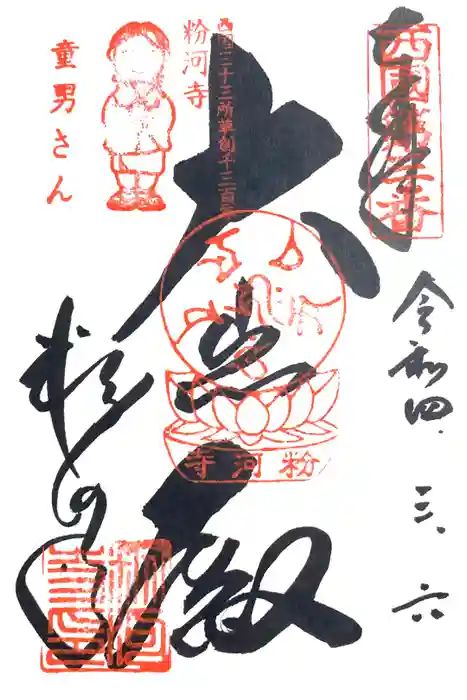 奉拝
西国第三番
令和四.三.六
大悲殿
西国三十三所草創千三百年
粉河寺
粉河寺
童男さん
粉河寺